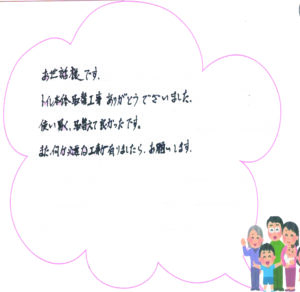 お世話様です。
トイレ本体、取替工事ありがとうございました。
使い易く、取替えて良かったです。
また何か必要な工事が有りましたら、お願いします。